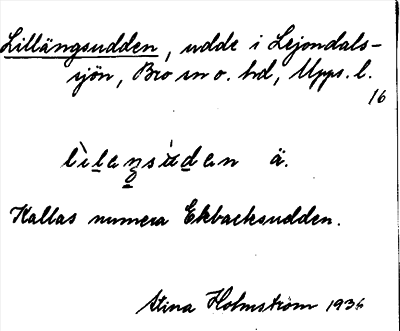 Lillängsudden, udde i Lejondals-
sjön, Bro sn o. hd, Upps. l.
16
lìlaŋsúdan ä.
Kallas numera Ekbacksudden.
Stina Holmström 1936